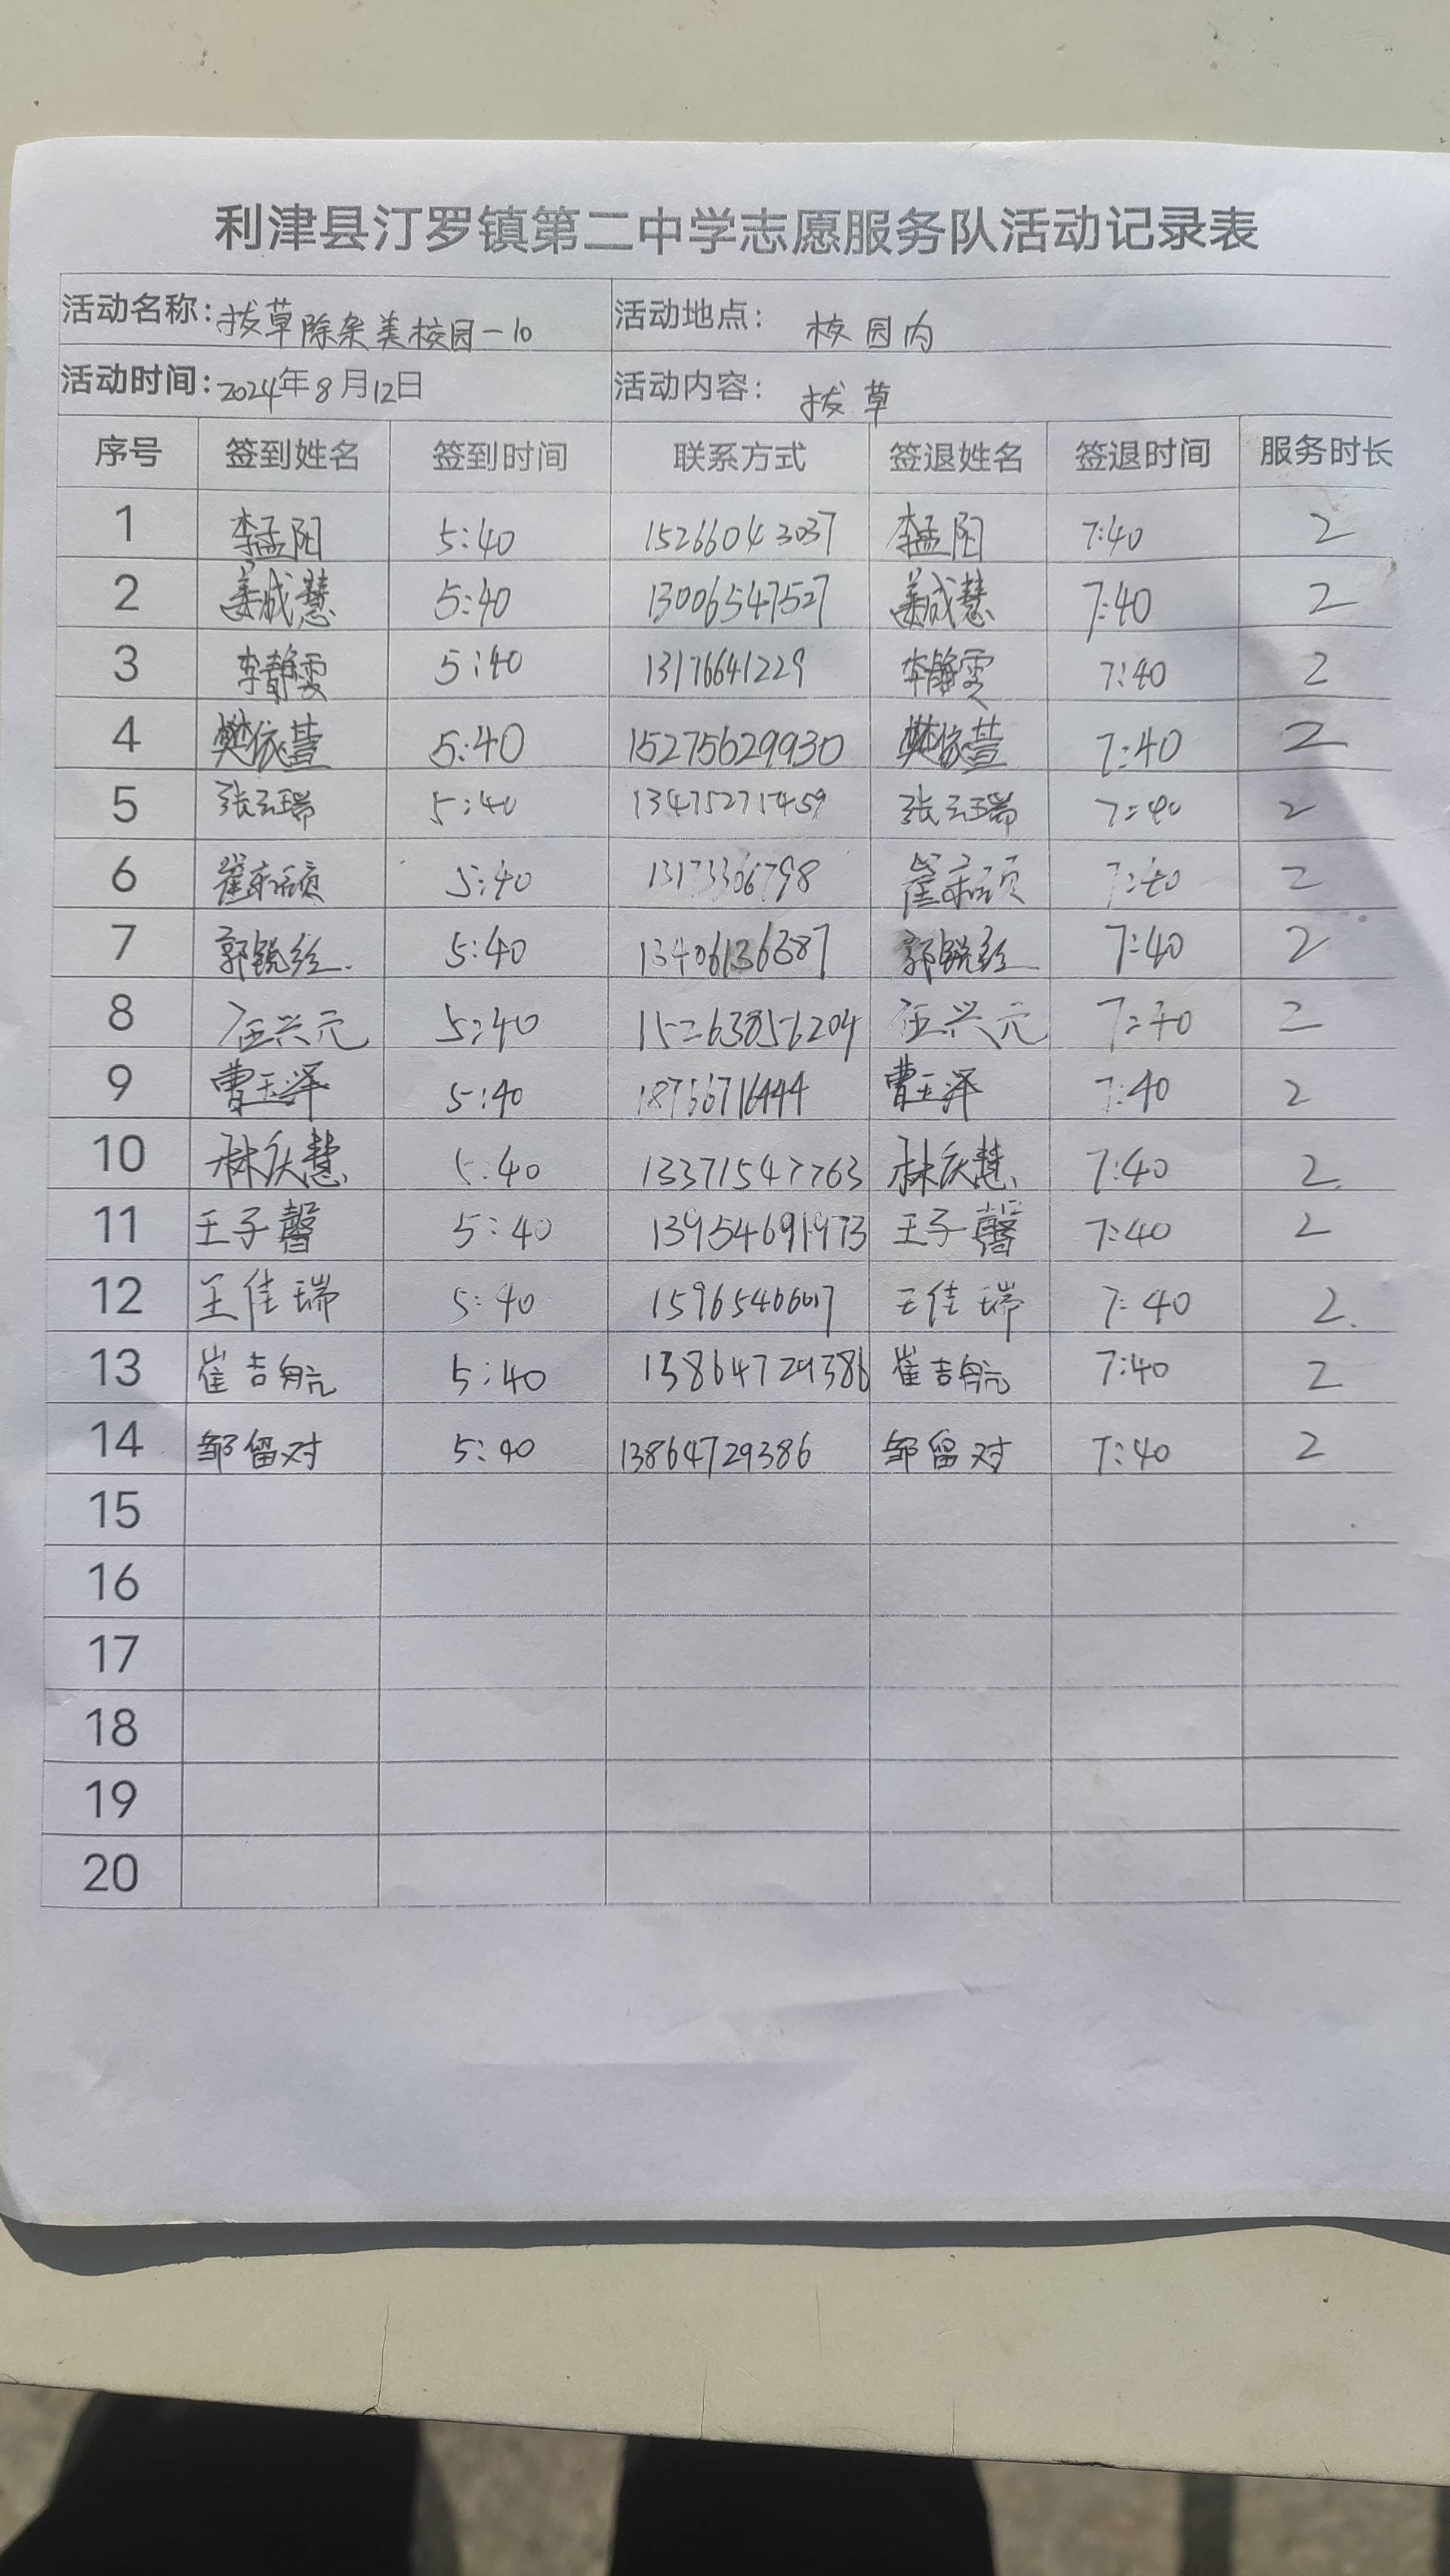 利津县汀罗镇第二中学志愿服务队活动记录表
活动名称：拔草除杂美校园-10 活动地点： 校园内
活动时间：2024年8月12日 活动内容： 拔草
序号 签到姓名 签到时间 联系方式 签退姓名 签退时间 服务时长
1 李孟阳 5:40 15266043037 李孟阳 7:40 2
2 姜成慧 5:40 13006547527 姜成慧 7:40 2
3 李静雯 5:40 13176641229 李静雯 7:40 2
4 樊依萱 5:40 15275629930 樊依萱 7:40 2
5 张云瑞 5:40 13475275459 张云瑞 7:40 2
6 崔 5:40 崔 7:40 2
7 郭锐 5:40 郭锐 7:40 2
8 兴元 5:40 15263856204 兴元 7:40 2
9 曹玉泽 5:40 曹玉泽 7:40 2
10 林庆慧 5:40 13371547763 林庆慧 7:40 2
11 王子馨 5:40 13954691973 王子馨 7:40 2
12 王佳瑞 5:40 王佳瑞 7:40 2
13 崔吉航 5:40 13864729386 崔吉航 7:40 2
14 邹留对 5:40 13864729386 邹留对 7:40 2
15
16
17
18
19
20